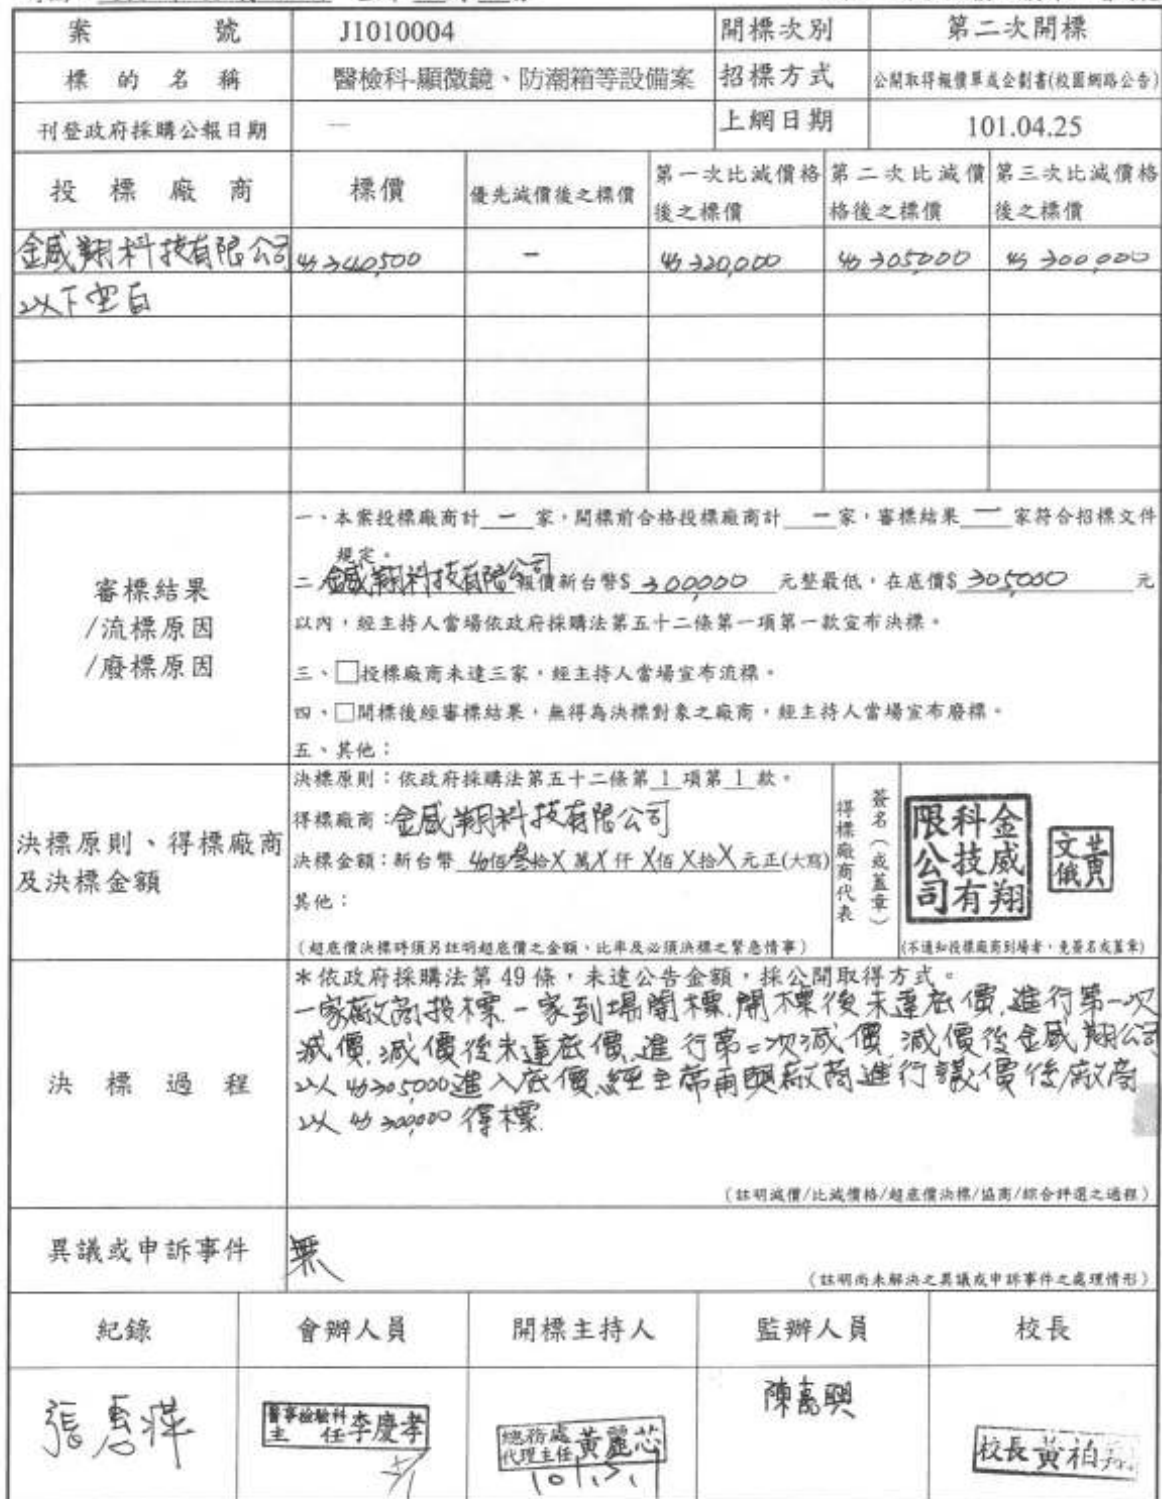 案號 J1010004 開標次別 第二次開標
標的名稱 醫檢科-顯微鏡、防潮箱等設備案 招標方式 公開取得報價單或企劃書(校園網路公告)
刊登政府採購公報日期 — 上網日期 101.04.25
投標廠商 標價 優先減價後之標價 第一次比減價格後之標價 第二次比減價格後之標價 第三次比減價格後之標價
金威翔科技有限公司 340,500 - 320,000 305,000 300,000
以下空白
審標結果
/流標原因
/廢標原因
一、本案投標廠商計 一 家,開標前合格投標廠商計 一 家,審標結果 一 家符合招標文件
規定。
二 金威翔科技有限公司 報價新台幣$ 300,000 元整最低,在底價$ 305,000 元
以內,經主持人當場依政府採購法第五十二條第一項第一款宣布決標。
三、□投標廠商未達三家,經主持人當場宣布流標。
四、□開標後經審標結果,無得為決標對象之廠商,經主持人當場宣布廢標。
五、其他:
決標原則、得標廠商
及決標金額
決標原則:依政府採購法第五十二條第 1 項第 1 款。
得標廠商:金威翔科技有限公司
決標金額:新台幣 佰叁拾X萬X仟X佰X拾X元正(大寫)
其他:
(超底價決標時須另註明超底價之金額、比率及必須決標之緊急情事)
得標廠商代表
簽名(或蓋章)
金威翔
科技有
限公司
黃
文
(不通知投標廠商到場者,免簽名或蓋章)
決標過程
*依政府採購法第49條,未達公告金額,採公開取得方式。
一家廠商投標.一家到場開標.開標後未達底價.進行第一次
減價.減價後未達底價.進行第二次減價.減價後金威翔公司
以 305,000進入底價.經主席再與廠商進行議價後廠商
以 300,000 得標.
(註明減價/比減價格/超底價決標/協商/綜合評選之過程)
異議或申訴事件 無
(註明尚未解決之異議或申訴事件之處理情形)
紀錄 會辦人員 開標主持人 監辦人員 校長
張
醫事檢驗科
主任 李慶孝
總務處
代理主任 黃麗芯
陳嘉興
校長 黃柏